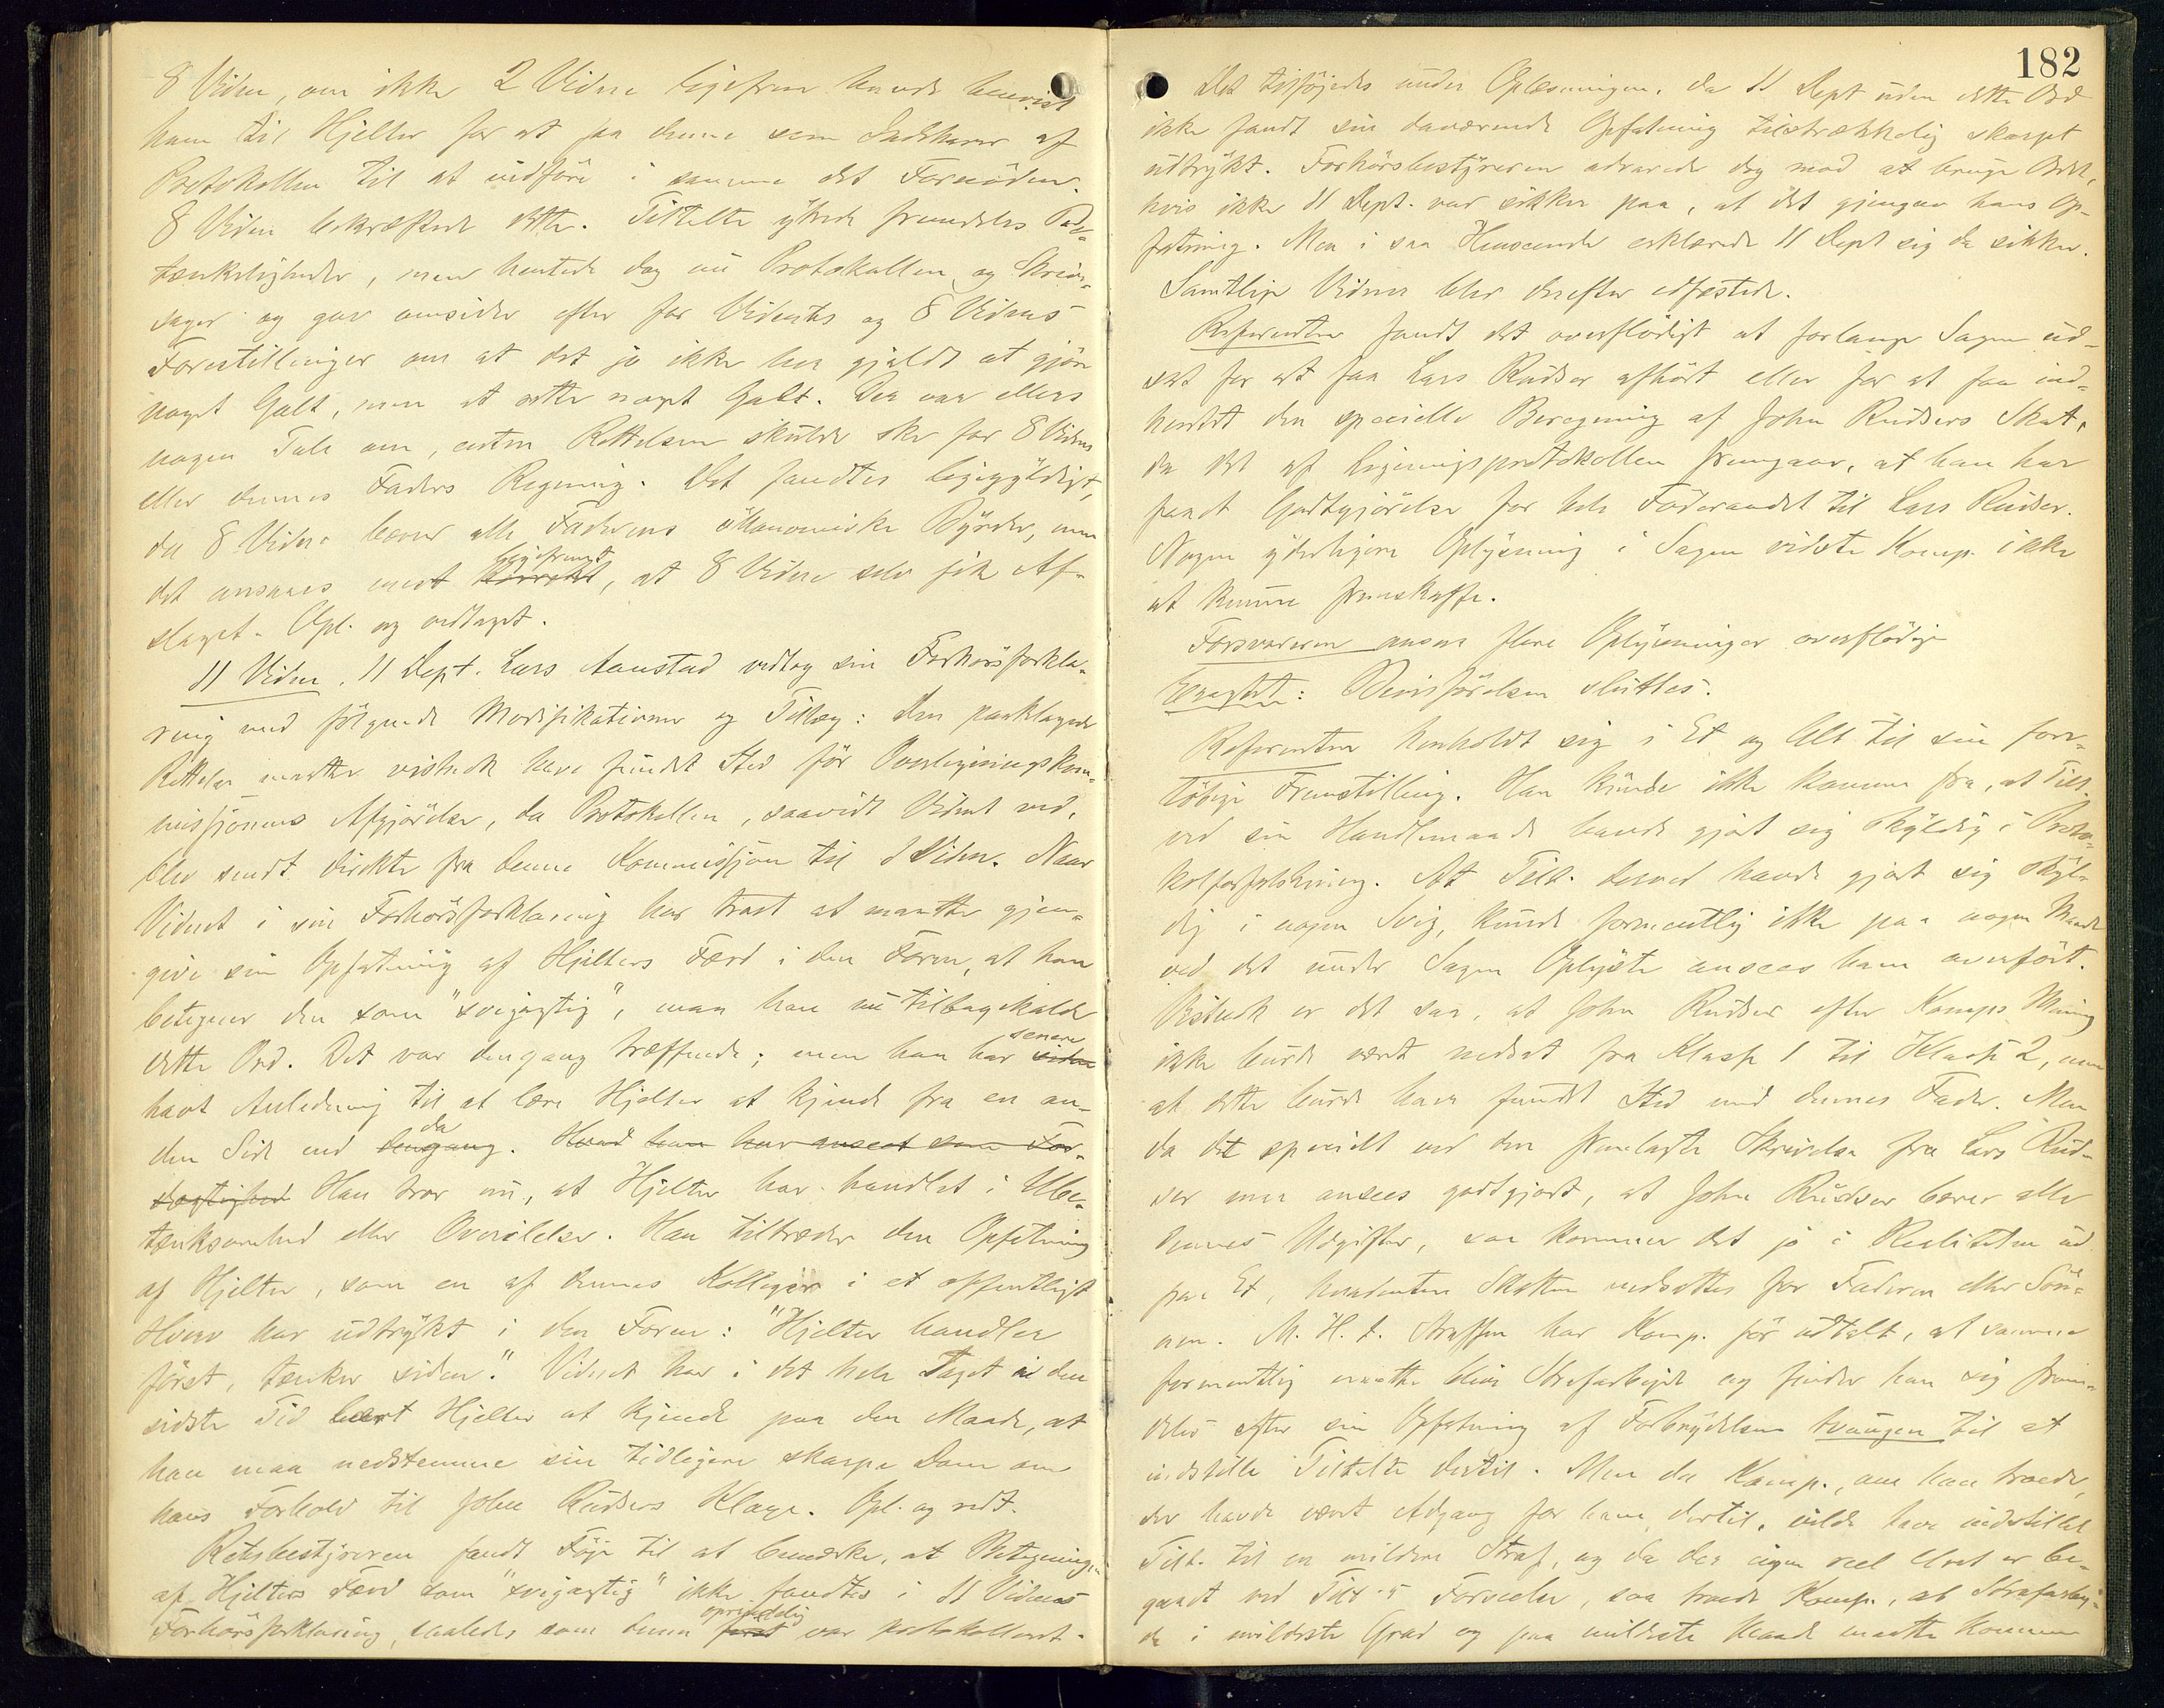 8 Vidne, om ikke 2 Vidne ligefrem havde henvist
ham til Hjelter for at faa denne som Indehaver af
Protokollen til at indføre i samme det Fornødne.
8 Vidne bekræftede dette. Tiltalte ytrede fremdeles Be-
tænkeligheder, men hentede dog nu Protokollen og Skrive-
sager og gav omsider efter for Vidnets og 8 Vidnes
Forestillinger om at det jo ikke her gjaldt at gjøre
noget Galt, men at rette noget Galt. Der var ellers
nogen Tale om, enten Rettelsen skulde ske for 8 Vidnes
eller dennes Faders Regning. Det fandtes ligegyldigt,
da 8 Vidne bærer alle Faderens økonomiske Byrder, men
ligefremt
det ansaaes mest korrekt, at 8 Vidne selv fik Af-
slaget. Opl. og vedtaget.
11 Vidne, 11 Dept. Lars Aanstad vedtog sin Forhørsforkla-
ring med følgende Modifikationer og Tillæg: Den paaklagede
Rettelse maatte vistnok have fundet Sted før Overligningskom-
missjonens Afgjørelse, da Protokollen, saavidt Vidnet ved,
blev sendt direkte fra denne Kommissjon til 1 Vidne. Naar
Vidnet i sin Forhørsforklaring har troet at maatte gjen-
give sin Opfatning af Hjelters Færd i den Form, at han
betegner den som "svigagtig", maa han nu tilbagekalde
senere
dette Ord. Det var dengang træffende; men han har siden
havt Anledning til at lære Hjelter at kjende fra en an-
da
den Side end dengang. Hvad han har anseet som For-
dægtighed Han tror nu, at Hjelter har handlet i Ube-
tænksomhed eller Overilelse. Han tiltræder den Opfatning
af Hjelter, som en af dennes Kolleger i et offentligt
Hverv har udtrykt i den Form: "Hjelter handler
først, tænker siden." Vidnet har i det hele Taget i den
sidste Tid lært Hjelter at kjende paa den Maade, at
han maa nedstemme sin tidligere skarpe Dom om
hans Forhold til John Rudsers Klage. Opl. og vedt.
Retsbestyreren fandt Føje til at bemærke, at Betegningen
af Hjelters Færd som "svigagtig" ikke fandtes i 11 Vidnes
oprindelig
Forhørsforklaring, saaledes som denne først var protokolleret.
182
Det tilføjedes under Oplæsningen, da 11 Dept uden dette Ord
ikke fandt sin daværende Opfatning tilstrækkelig skarpt
udtrykt. Forhørsbestyreren advarede dog mod at bruge Ordet,
hvis ikke 11 Dept. var sikker paa, at det gjengav hans Op-
fatning. Men i saa Henseende erklærede 11 Dept sig da sikker.
Samtlige Vidner blev derefter edfæstede.
Referenten fandt det overflødigt at forlange Sagen ud-
sat for at faa Lars Rudser afhørt eller for at faa ind-
hentet den specielle Beregning af John Rudsers Skat,
da det af Ligningsprotokollen fremgaar, at han har
faaet Godtgjørelse for hele Føderaadet til Lars Rudser.
Nogen yderligere Oplysning i Sagen vidste Komp. ikke
at kunne fremskaffe.
Forsvareren ansaa flere Oplysninger overflødige
Eragtet: Bevisførelsen sluttes.
Referenten henholdt sig i Et og Alt til sin fore-
løbige Fremstilling. Han kunde ikke komme fra, at Tilt.
ved sin Handlemaade havde gjort sig skyldig i Proto-
kolforfalskning. At Tilt. derved havde gjort sig skyl-
dig i nogen Svig, kunde formentlig ikke paa nogen Maade
ved det under Sagen Oplyste ansees ham overført.
Vistnok er det saa, at John Rudser efter Komps Mening
ikke burde været nedsat fra Klasse 1 til Klasse 2, men
at dette burde have fundet Sted med dennes Fader. Men
da det specielt ved den fremlagte Skrivelse fra Lars Rud-
ser maa ansees godtgjort, at John Rudser bærer alle
dennes Udgifter, saa kommer det jo i Realiteten ud
paa Et, hvadenten Skatten nedsættes for Faderen eller Søn-
nen. M. H. t. Straffen har Komp. før udtalt, at samme
formentlig maatte blive Strafarbejde og finder han sig frem-
deles efter sin Opfatning af Forbrydelsen tvungen til at
indstille Tiltalte dertil. Men da Komp., om han troede,
der havde været Adgang for ham dertil, vilde have indstillet
Tilt. til en mildere Straf, og da der ingen reel Uret er be-
gaaet ved Tilt's Forseelse, saa troede Komp., at Strafarbej-
de i mildeste Grad og paa mildeste Maade maatte komme